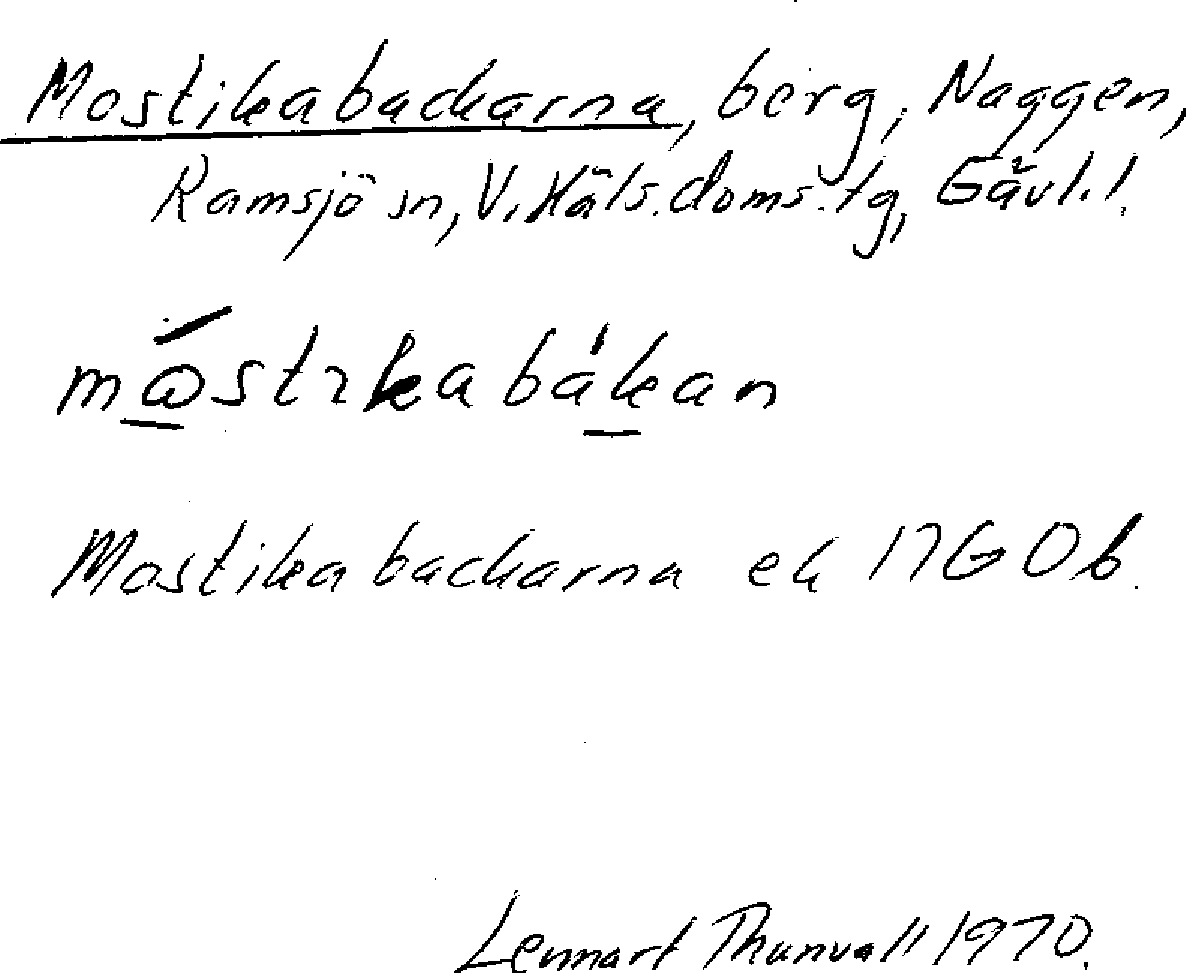 Mostikabackarna, berg, Naggen,
Ramsjö sn, V. Häls. doms. tg, Gävl. l.
måstıkabákan
Mostikabackarna ek 17G 0b.
Lennart Thunvall 1970.